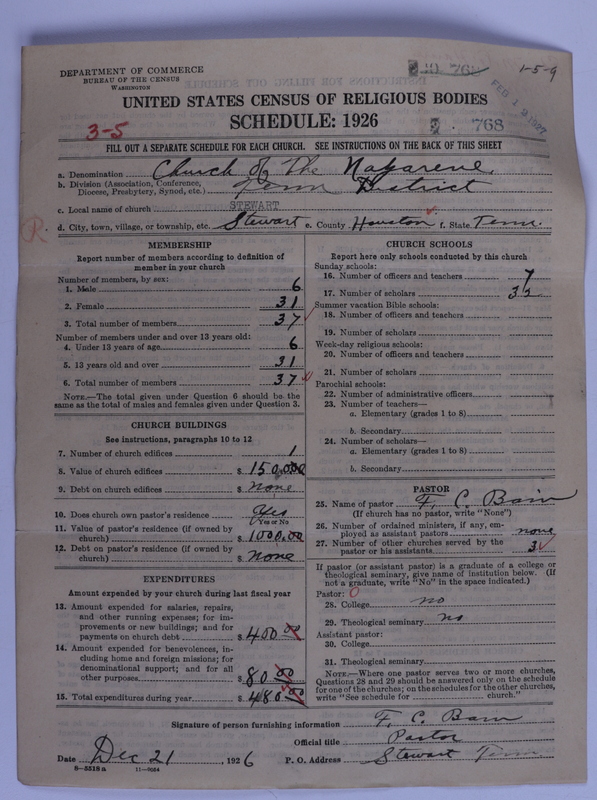 DEPARTMENT OF COMMERCE
BUREAU OF THE CENSUS
WASHINGTON
1-5-9
FEB 19 1927
UNITED STATES CENSUS OF RELIGIOUS BODIES
SCHEDULE: 1926
3-5
768
FILL OUT A SEPARATE SCHEDULE FOR EACH CHURCH. SEE INSTRUCTIONS ON THE BACK OF THIS SHEET
a. Denomination Church of The Nazarene
b. Division (Association, Conference, Diocese, Presbytery, Synod, etc.) Tenn District
c. Local name of church STEWART
d. City, town, village, or township, etc. Stewart e. County Houston f. State Tenn.
R
MEMBERSHIP
Report number of members according to definition of member in your church
Number of members, by sex:
1. Male 6
2. Female 31
3. Total number of members 37
Number of members under and over 13 years old:
4. Under 13 years of age 6
5. 13 years old and over 31
6. Total number of members 37
NOTE.—The total given under Question 6 should be same as the total of males and females given under Question 3.
CHURCH BUILDINGS
See instructions, paragraphs 10 to 12
7. Number of church edifices 1
8. Value of church edifices $
9. Debt on church edifices $ none
10. Does church own pastor's residence Yes
Yes or No
11. Value of pastor's residence (if owned by church) $ 1000.00
12. Debt on pastor's residence (if owned by church) $ None
EXPENDITURES
Amount expended by your church during last fiscal year
13. Amount expended for salaries, repairs, and other running expenses; for improvements or new buildings; and for payments on church debt $ 400 00
14. Amount expended for benevolences, including home and foreign missions; for denominational support; and for all other purposes $ 80 00
15. Total expenditures during year $ 480 00
CHURCH SCHOOLS
Report here only schools conducted by this church
Sunday schools:
16. Number of officers and teachers 7
17. Number of scholars
Summer vacation Bible schools:
18. Number of officers and teachers
19. Number of scholars
Week-day religious schools:
20. Number of officers and teachers
21. Number of scholars
Parochial schools:
22. Number of administrative officers
23. Number of teachers—
a. Elementary (grades 1 to 8)
b. Secondary
24. Number of scholars—
a. Elementary (grades 1 to 8)
b. Secondary
PASTOR
25. Name of pastor F. C. Bain
(If church has no pastor, write "None")
26. Number of ordained ministers, if any, employed as assistant pastors none
27. Number of other churches served by the pastor or his assistants 3
If pastor (or assistant pastor) is a graduate of a college or theological seminary, give name of institution below. (If not a graduate, write "No" in the space indicated.)
Pastor: 0
28. College no
29. Theological seminary no
Assistant pastor:
30. College
31. Theological seminary
NOTE.—Where one pastor serves two or more churches, Questions 28 and 29 should be answered only on the schedule for one of the churches; on the schedules for the other churches, write "See schedule for church."
Signature of person furnishing information F. C. Bain
Official title Pastor
Date Dec 21, 1926 P. O. Address Stewart Tenn
8—5518 a 11—9024